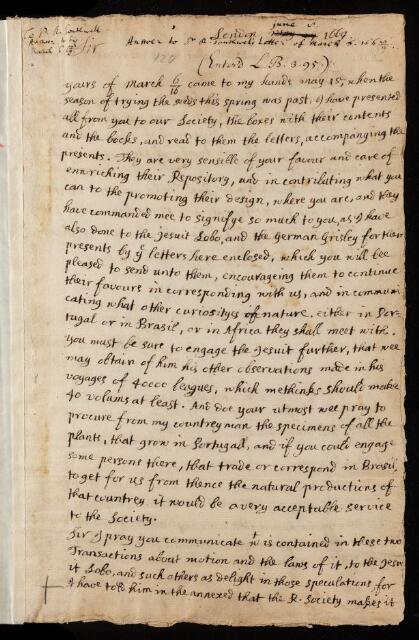 To Sr R. Southwell
Answer to his
March 6/16
Sir
Answer to Sr R. Southwells Letter of March 6. 166 8/9
London june 1669
120
(Enterd L.B. 3. 95.)
yours of March 6/16 came to my hands may 15, when the
season of trying the seeds this spring was past, I have presented
all from you to our Society, the boxes with their contents
and the books, and read to them the letters, accompanying the
presents. They are very sensible of your favour and care of
enriching their Repository, and in contributing what you
can to the promoting their design, where you are, and they
have commanded mee to signifye so much to you, as I have
also done to the jesuit Lobo, and the German Grisley for their
presents by ye letters here enclosed, which you will bee
pleased to send unto them, encouraging them to continue
their favours in corresponding with us, and in communi
cating what other curiosityes of nature. either in Por-
tugal or in Brasil, or in Africa they shall meet with.
You must be sure to engage the jesuit further, that wee
may obtain of him his other observations made in his
voyages of 40000 leagues, which methinks should make
40 volums at least. And doe your utmost wee pray to
procure from my countreyman the specimens of all the
plants, that grow in Portugall, and if you could engage
some persons there, that trade or correspond in Brasil,
to get for us from thence the natural productions of
that countrey it would be a very acceptable service
to the Society.
Sir I pray you communicate wt is contained in these two
Transactions about motion and the laws of it, to the Jesu
it Lobo, and such others as delight in those speculations for
I have told him in the annexed that the R. Society makes it